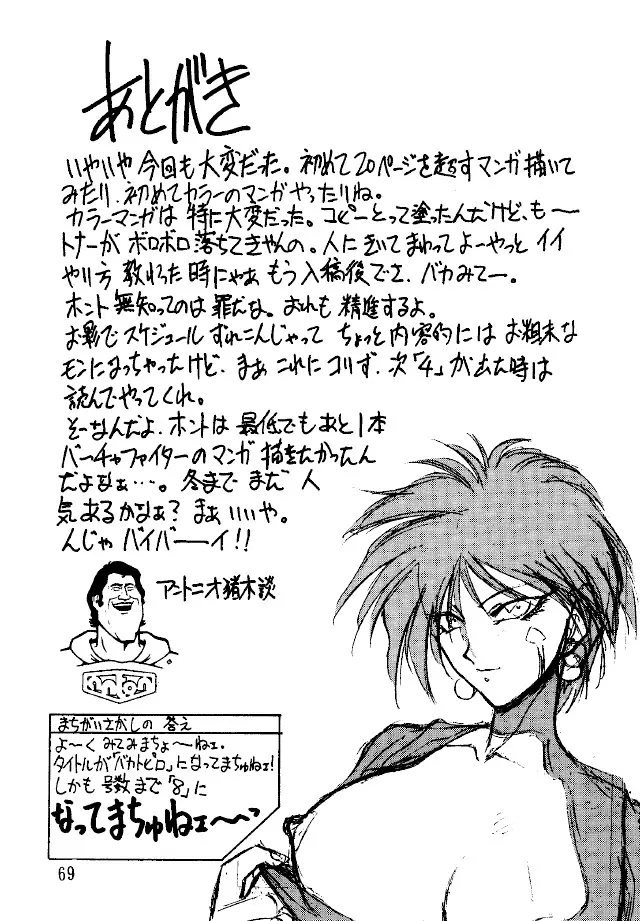 あとがき
いやいや今回も大変だった。初めて20ページを越すマンガ描いて
みたり、初めてカラーのマンガやったりね。
カラーマンガは特に大変だった。コピーとって塗ったんだけど、も〜
トナーがボロボロ落ちてきやんの。人にきいてまわってよーやっとイイ
やり方教わった時にゃあもう入稿後でさ、バカみてー。
ホント無知ってのは罪だな。おれも精進するよ。
お影でスケジュールずれこんじゃってちょっと内容的にはお粗末な
モンになっちゃったけど、まあこれにコリず、次「4」が出た時は
読んでやってくれ。
そーなんだよ、ホントは最低でもあと1本
バーチャファイターのマンガ描きたかったん
だよなぁ…。冬までまだ人
気あるかなぁ?まぁいいや。
んじゃバイバーーイ!!
アントニオ猪木談
まちがいさがしの答え
よ〜くみてみまちょ〜ねェ。
タイトルが「バカトピロ」になってまちゅねェ!
しかも号数まで「8」に
なってまちゅねェ〜〜っ
69